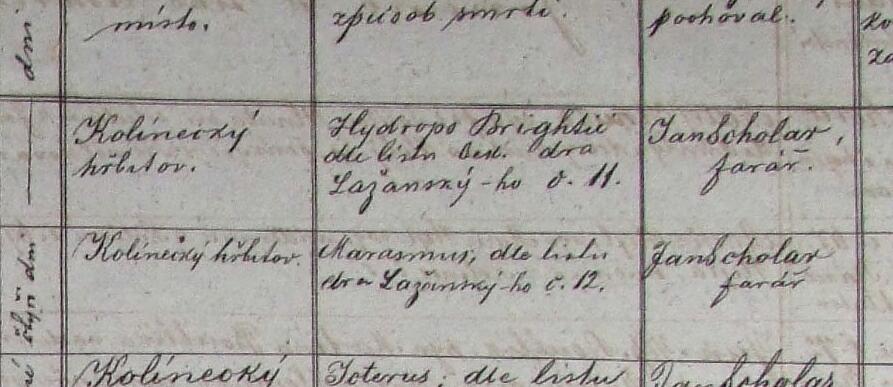 dni
místo.
způsob smrti.
pochoval.
Kolínecký
hřbitov.
Hydrops Brightic
dle listu oed. dra
Lažanský-ho č. 11.
Jan Scholar,
farář.
dni
Kolínecký hřbitov.
Marasmus, dle listu
dra Lažanský-ho č. 12.
Jan Scholar
farář
Kolínecký
Icterus, dle listu
Jan Scholar